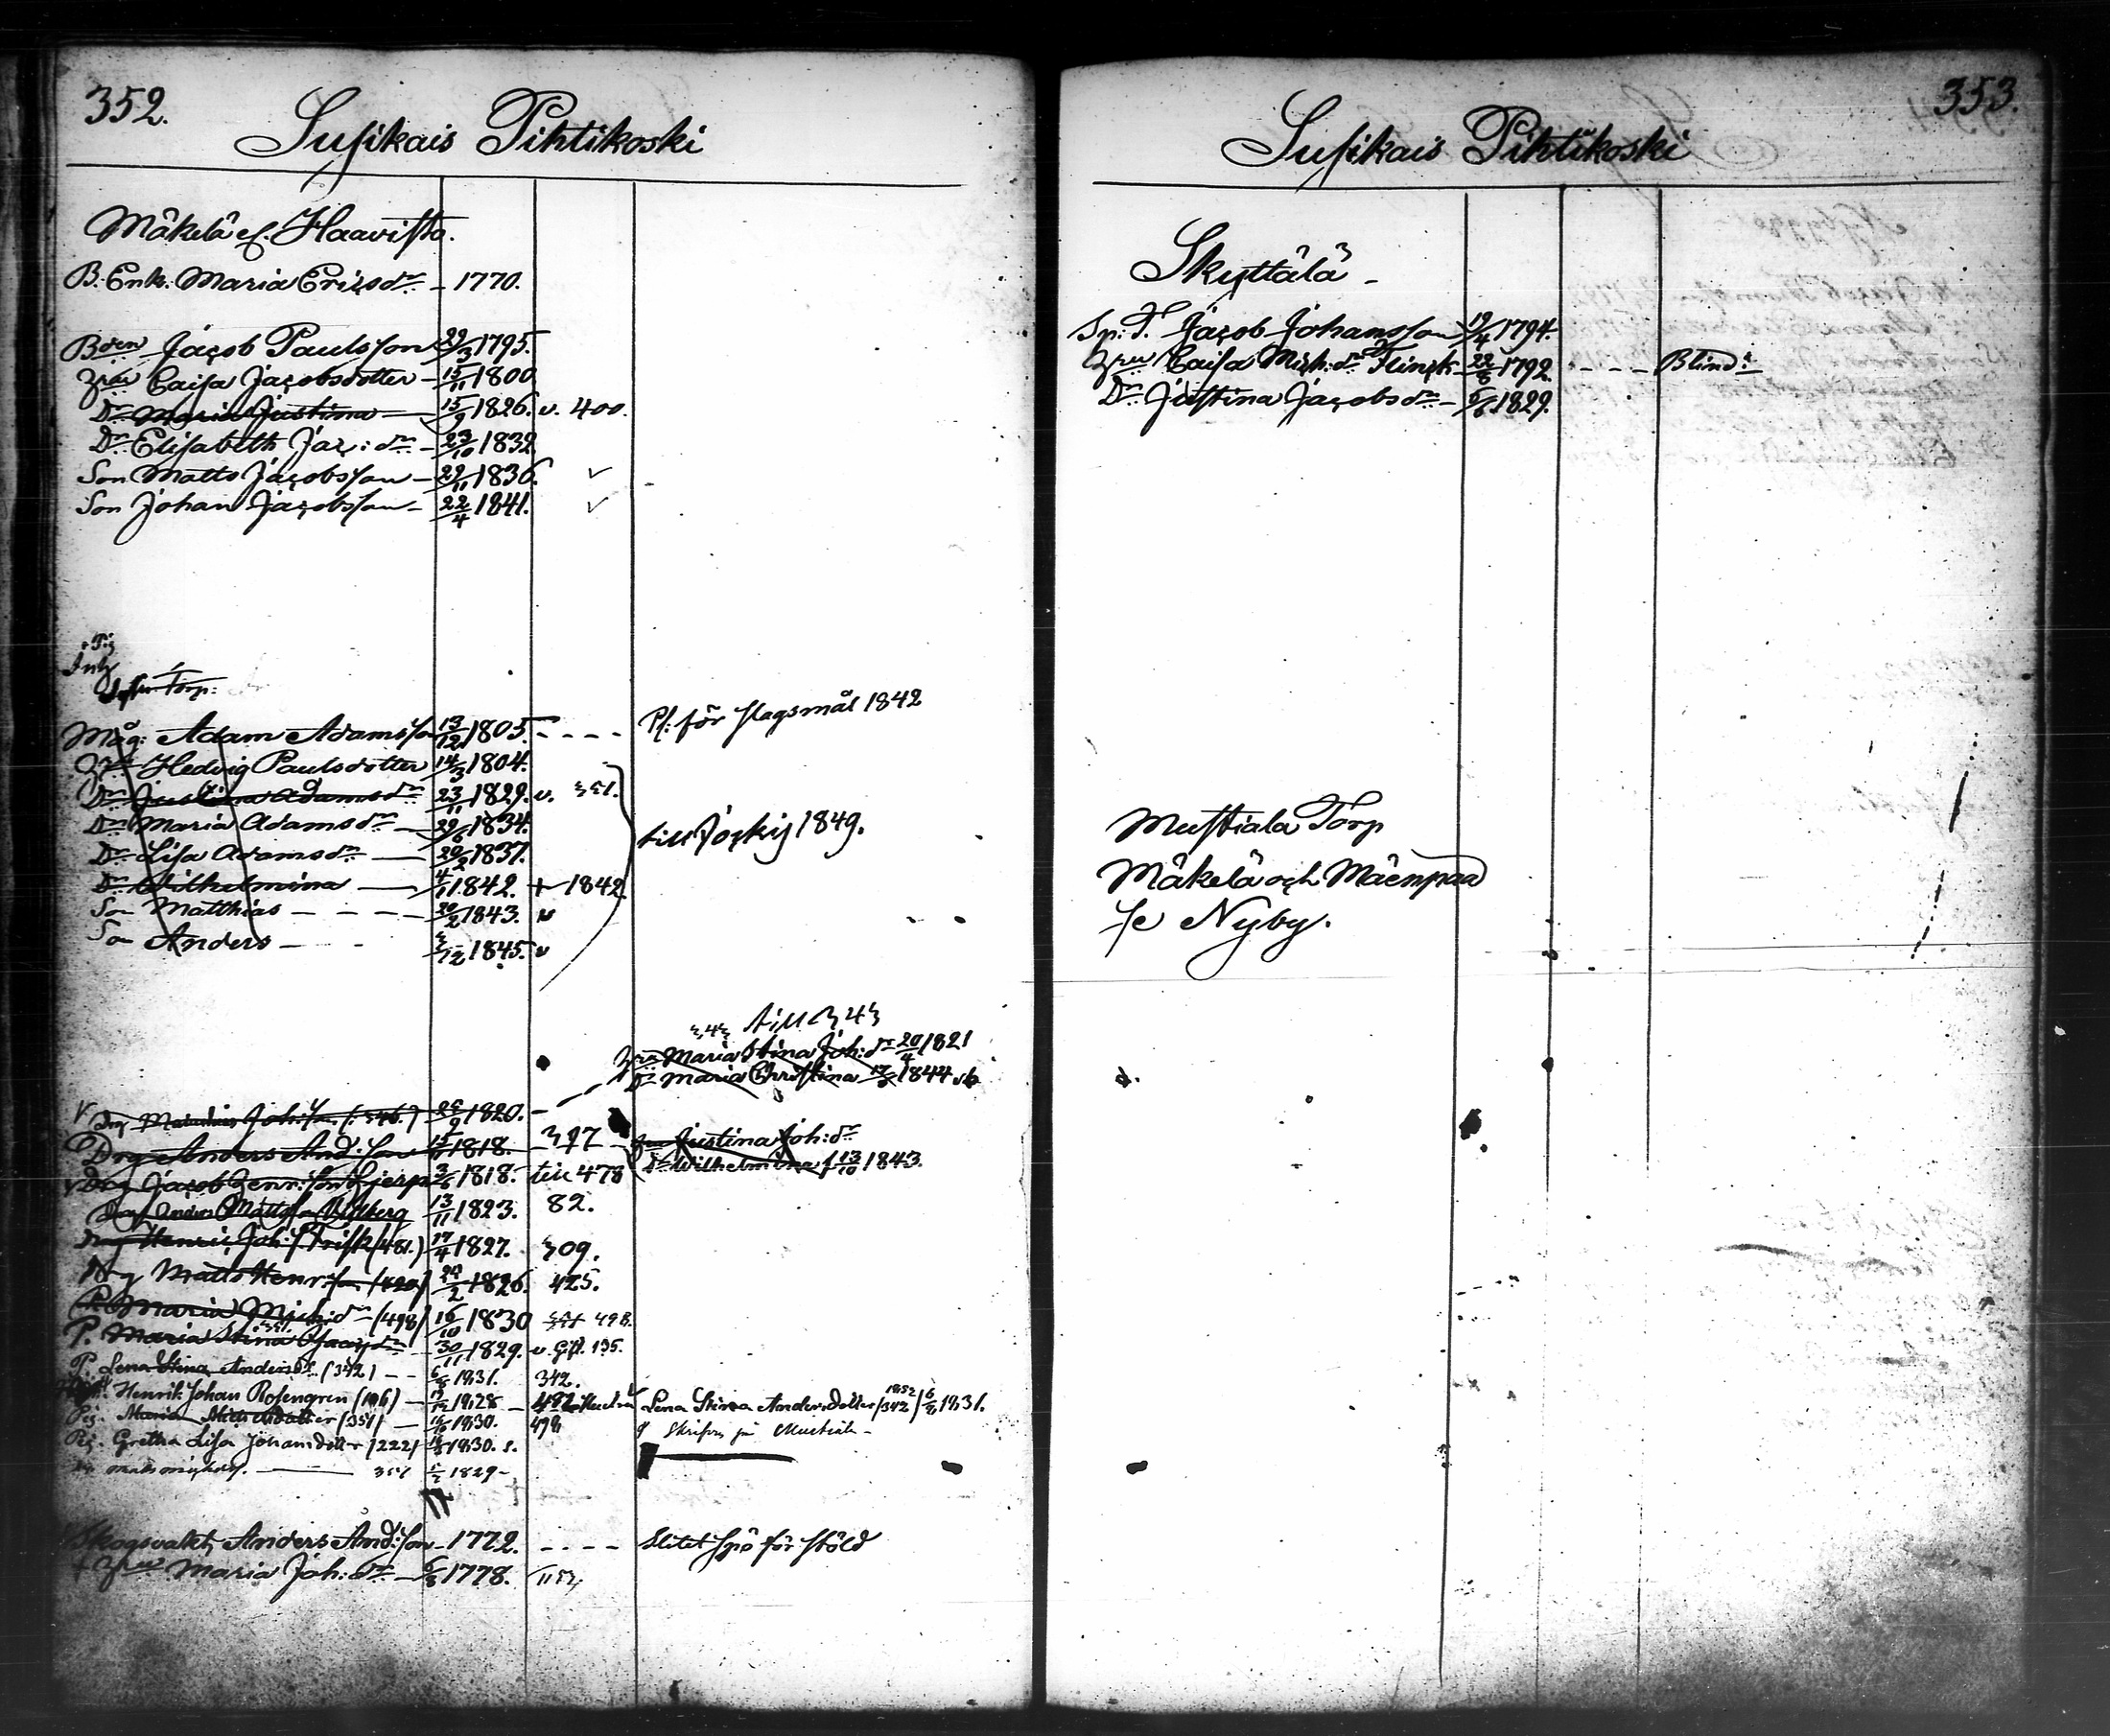 352.
Susikais Pihtikoski
Mäkelä el. Haavisto.
B. Enk: Maria Ericsdr. – 1770.
Bden Jacob Paulsson 29/3 1795.
Hru Caisa Jacobsdotter – 15/11 1800
Dr. Maria Justina – 15/9 1826. v. 400.
Dr. Elisabeth Jac: dr. – 23/10 1832.
Son Matts Jacobsson – 22/11 1836. v
Son Johan Jacobsson – 22/4 1841. v
Torp:
Måg: Adam Adamsson 13/12 1805. - - - - Pl. för slagsmål 1842
Hru Hedvig Paulsdotter 14/3 1804.
Dr. Justina Adamsdr. 23/11 1829. v. 351.
Dr. Maria Adamsdr. – 29/6 1834.
till Jockis 1849.
Dr. Lisa Adamsdr. – 20/2 1837.
Dr. Wilhelmina – 4/1 1842. + 1842.
Son Matthias - - - - 20/2 1843. v
Son Anders – 3/12 1845. v
343 till 343
Hru Maria Stina Joh: dr. 20/4 1821
Dr. Maria Christina 1844
Drg Joh: son (346.) 1820. –
Drg Anders And: son 1818. – 397 – Hru Justina Joh: dr.
Dr. Wilhelmina f 13/10 1843.
Drg Jacob Henr: son 3/6 1818. till 478
Drg Anders Mattsson 13/11 1823. 82.
Drg Henric Joh: s. Frisk (481.) 17/4 1827. 309.
Drg Matts Henr: son (420) 24/2 1826. 425.
P. Maria Mich: dr. (498) 16/10 1830 498.
P. Maria Stina 30/11 1829. v. Gift. 135.
P. Lena Stina Andersdr. (342) - - 6/8 1831. 342.
Henrik Johan Rosengren (106) – 1828 – 482 Lena Stina Andersdotter 1852 (342) 6/8 1831.
Pig. Maria Michelsdotter (351) – 16/10 1830. 498
Skrifven på Mustiala –
Pig. Gretha Lisa Johansdotter (222) 1830. s.
357 1829 –
Skogsvakt, Anders And: son – 1772. - - - - Slitet spö för stöld
+ Hru Maria Joh: dr. – 6/8 1778.
353.
Susikais Pihtikoski
Skyttälä –
Sp: T. Jacob Johansson 19/4 1794.
Hru Caisa Mich: dr. Flinck – 22/8 1792. - - - Blind.
Dr. Justina Jacobsdr. – 5/6 1829.
Mustiala Torp
Mäkelä och Mäenpää
se Nyby.